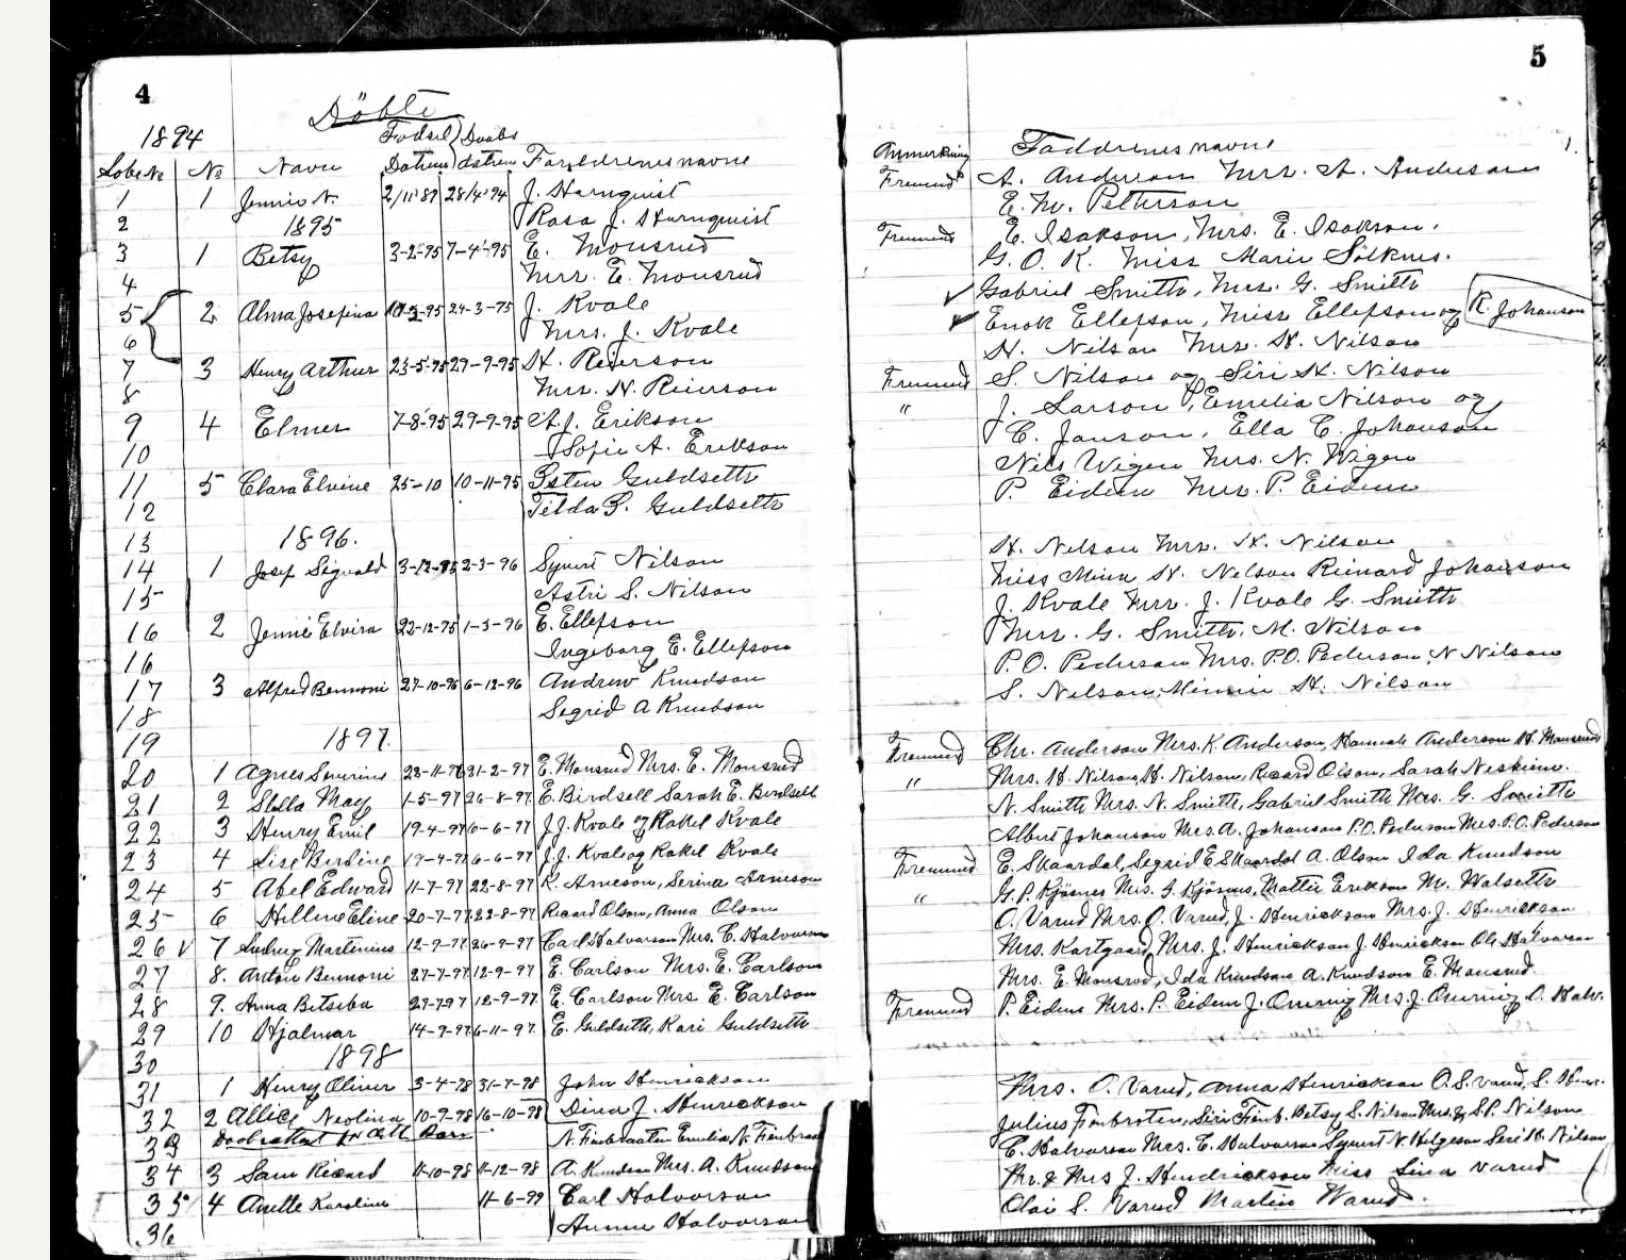 4
Döbte
1894
Fodsel Daabs
Lobe № № Navn Datum datum Forældrenes navne
1 1 Jennie N. 2/11 89 28/4 94 J. Hornquist
2 1895 Rosa J. Hornquist
3 1 Betsy 3-2-95 7-4-95 E. Monsrud
4 Mrs. E. Monsrud
5 2 Alma Josefina 24-3-95 J. Kvale
6 Mrs. J. Kvale
7 3 Henry Arthur 23-5-95 29-9-95 H. Reierson
8 Mrs. H. Reierson
9 4 Elmer 7-8-95 29-9-95 A. J. Erikson
10 Sofie A. Erikson
11 5 Clara Elvine 25-10 10-11-95 Esten Guldseth
12 Tilda G. Guldseth
13 1896.
14 1 Josef Sigvald 3-12-95 2-3-96 Syvert Nilson
15 Astri S. Nilson
16 2 Jennie Elvira 22-12-95 1-3-96 E. Ellefson
16 Ingeborg E. Ellefson
17 3 Alfred Bennoni 27-10-96 6-12-96 Andrew Knudson
18 Segrid A Knudson
19 1897.
20 1 Agnes Severine 28-11-96 21-2-97 E. Monsrud Mrs. E. Monsrud
21 2 Stella May 1-5-97 26-8-97 E. Birdsell Sarah E. Birdsell
22 3 Henry Emil 19-4-97 6-6-97 J. J. Kvale og Rakel Kvale
23 4 Lise Berdine 19-4-97 6-6-97 J. J. Kvale og Rakel Kvale
24 5 Abel Edward 11-7-97 22-8-97 K. Arneson, Serina Arneson
25 6 Helline Eline 20-7-97 22-8-97 Ricard Olson, Anna Olson
26 √ 7 Ludvig Martinius 12-9-97 26-9-97 Carl Halvorson Mrs. C. Halvorson
27 8. Anton Bennoni 27-7-97 12-9-97 E. Carlson Mrs. E. Carlson
28 9. Anna Betseba 27-7-97 12-9-97 E. Carlson Mrs. E. Carlson
29 10 Hjalmar 14-9-97 6-11-97. E. Guldseth, Kari Guldseth
30 1898
31 1 Henry Oliver 3-4-98 31-7-98 John Henrickson
32 2 Allice Neolina 10-7-98 16-10-98 Dina J. Henrickson
33 N. Finbraaten Emelia N. Finbraa
34 3 Sam Ricard 11-10-98 11-12-98 A. Knudson Mrs. A. Knudson
35 4 Anette Karoline 11-6-99 Carl Halvorson
36 Annie Halvorson
5
Anmerkning Faddrenes navne
Fremmed A. Anderson Mrs. A. Anderson
E. M. Petterson
Fremmed E. Isakson, Mrs. E. Isakson.
G. O. K. Miss Marie Solknes.
√ Gabriel Smith, Mrs. G. Smith
√ Enok Ellefson, Miss Ellefson og R. Johanson
H. Nilson Mrs. H. Nilson
Fremmed S. Nilson og Siri H. Nilson
" J. Larson, Emelia Nilson og
C. Janson, Ella C. Johanson
Nils Wigen Mrs. N. Wigen
P. Eidem Mrs. P. Eidem
H. Nelson Mrs. H. Nilson
Miss Mina H. Nelson Rienard Johanson
J. Kvale Mrs. J. Kvale G. Smith
Mrs. G. Smith. M. Nilson
P. O. Pederson Mrs. P. O. Pederson, N Nilson
S. Nelson, Minnie H. Nilson
Fremmed Chr. Anderson Mrs. K. Anderson, Hannah Anderson H. Monsrud
" Mrs. H. Nilson, H. Nilson, Ricard Olson, Sarah
N. Smith Mrs. N. Smith, Gabriel Smith Mrs. G. Smith
Albert Johanson Mrs. A. Johanson P. O. Pederson Mrs. P. O. Pederson
Fremmed E. Skaardal, Segrid E Skaardal A. Olson Ida Knudson
" G. P. Kjösnes Mrs. G. Kjösnes, Mattie Erikson M. Walseth
O. Varud Mrs. O. Varud, J. Henrickson Mrs. J. Henrickson
Mrs. Kortgaard, Mrs. J. Henrickson J. Henrickson Ole Halvorson
Mrs. E. Monsrud, Ida Knudson A. Knudson E. Monsrud.
Fremmed P. Eidem Mrs. P. Eidem J. Mrs. J. O. Halv.
Mrs. O. Varud, Anna Henrickson O. S. Varud, S. Henr.
Julius Finbroten, Siri Finb. Betsy S. Nilson Mrs. & S. P. Nilson
C. Halvorson Mrs. C. Halvorson Syvert N. Helgeson Siri H. Nilson
Mr. & Mrs J. Hendrickson Miss Lina Varud
Olai S. Varud Martin Warud.